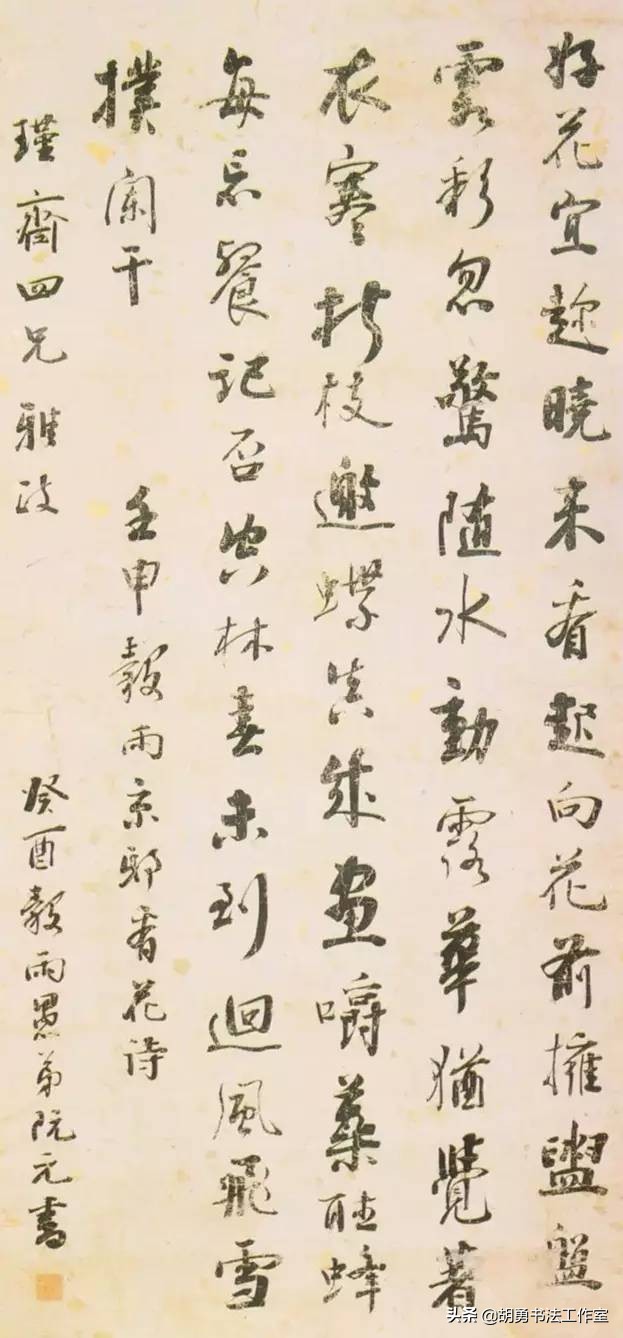 好花宜趂曉来看起向花前擁盥盤
霞彩忽驚隨水動露華猶覺著
衣寒折枝邀蝶真成畫嚼蘂聽蜂
每忘餐記否空林春未到迴風飛雪
撲闌干 壬申穀雨京邸看花詩
瑾齋四兄雅政 癸酉穀雨愚弟阮元書
头条 @胡勇书法工作室